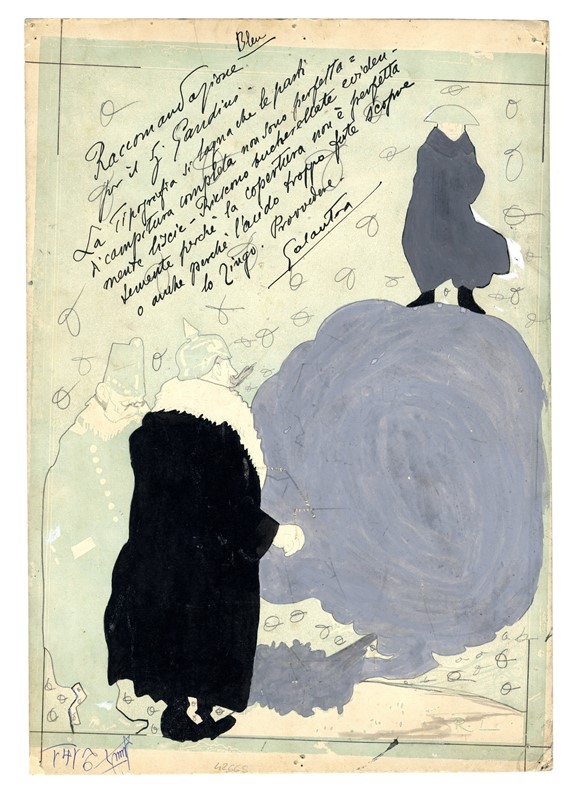 Bleu
Raccomandazione
per il S. Gaudini
La Tipografia si lagna che le parti
di campitura completa non sono perfetta=
mente liscie - Riescono bucherellate eviden-
temente perchè la copertura non è perfetta
o anche perchè l'acido troppo forte scopre
lo zingo. Provvedere.
Galantara
R L